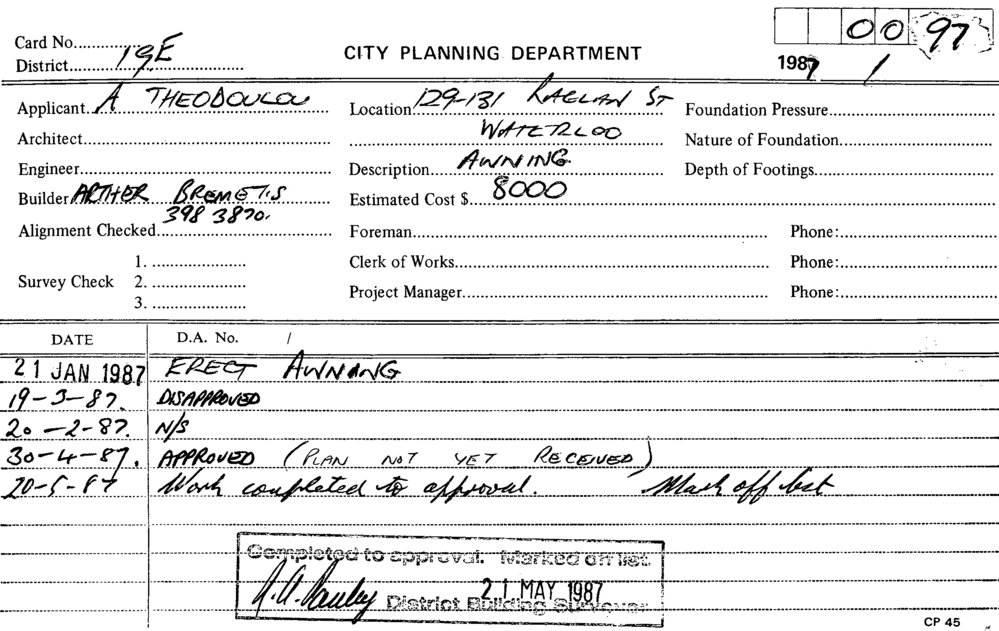 Card No.
District 19E
CITY PLANNING DEPARTMENT
0 0 97
1987 1
Applicant A THEODOULOU Location 129-131 RAGLAN ST Foundation Pressure
Architect WATERLOO Nature of Foundation
Engineer Description AWNING Depth of Footings
Builder ARTHER BREMETIS Estimated Cost $ 8000
398 3870.
Alignment Checked Foreman Phone:
1. Clerk of Works Phone:
Survey Check 2.
Project Manager Phone:
3.
DATE D.A. No. /
21 JAN 1987 ERECT AWNING
19-3-87. DISAPPROVED
20-2-87. N/S
30-4-87. APPROVED (PLAN NOT YET RECEIVED)
20-5-87 Work completed to approval. Mark off list
Completed to approval. Marked off list.
21 MAY 1987
District Building Surveyor
CP 45